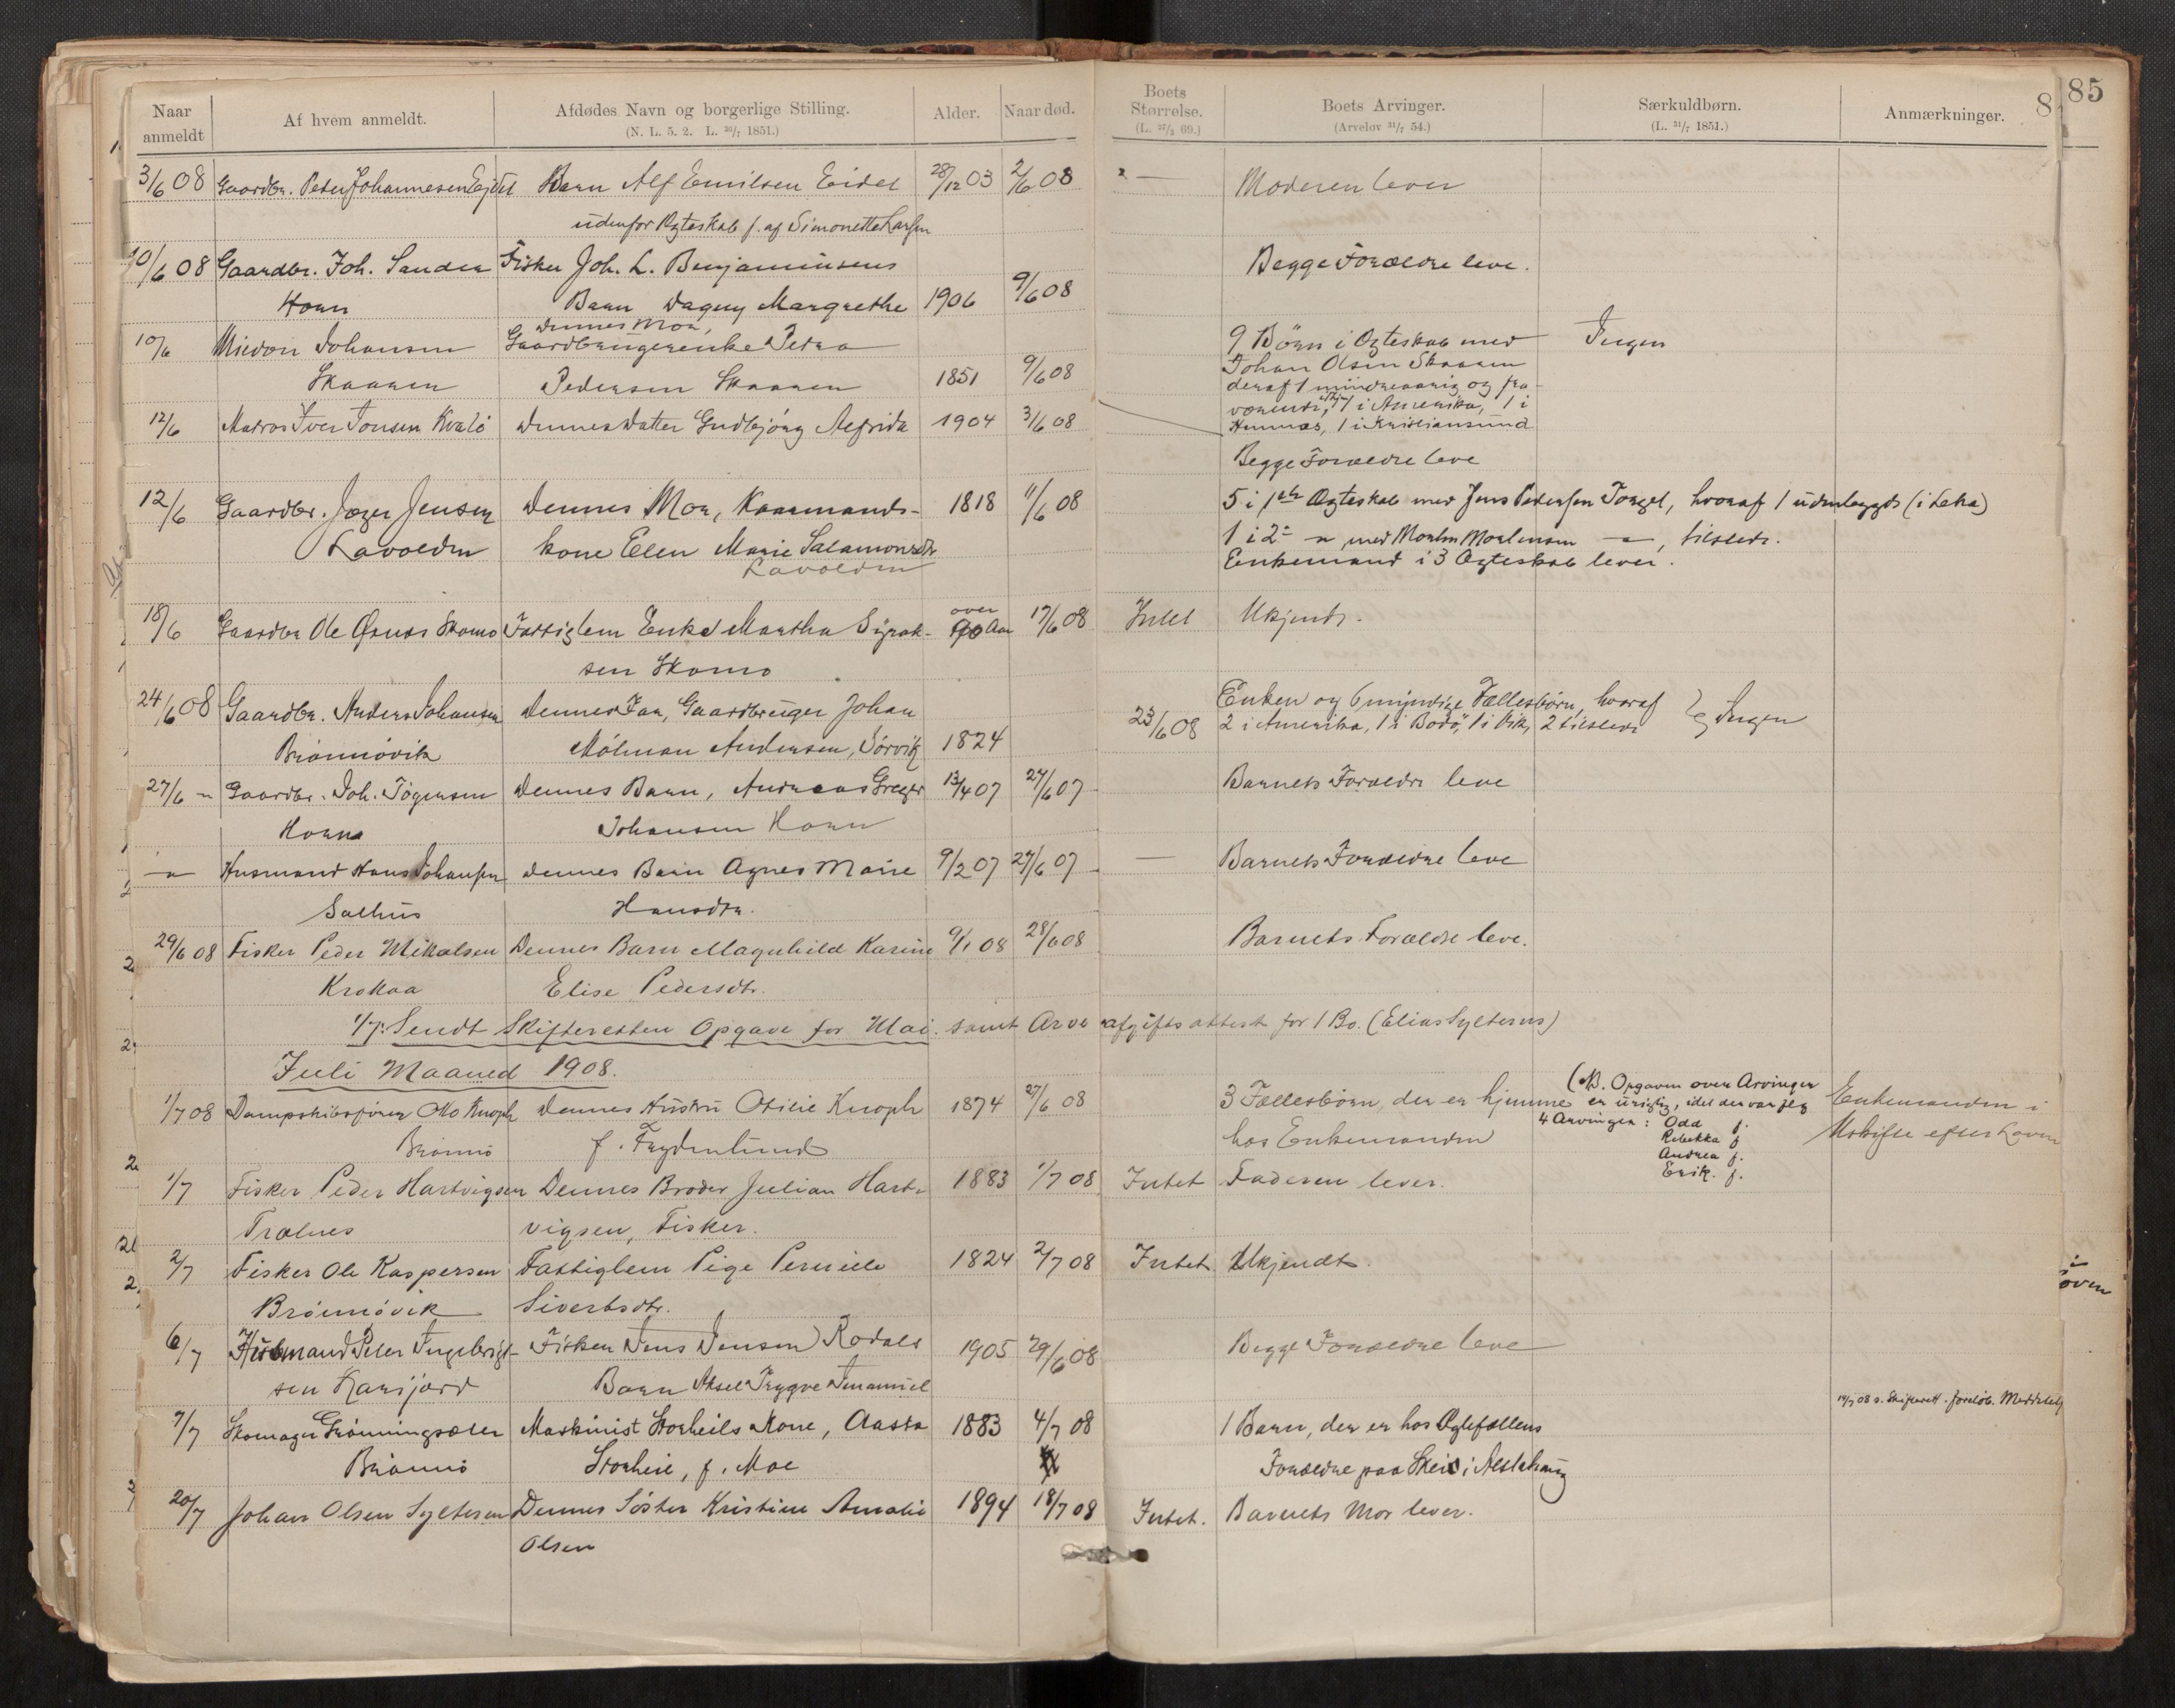 85
8
Naar anmeldt
Af hvem anmeldt.
Afdødes Navn og borgerlige Stilling.
(N. L. 5. 2. L. 30/7 1851.)
Alder.
Naar død.
Boets Størrelse.
(L. 27/3 69.)
Boets Arvinger.
(Arvelov 31/7 54.)
Særkuldbørn.
(L. 31/7 1851.)
Anmærkninger.
3/6 08 Gaardbr. Peter Johannesen Eidet Barn Alf Emilsen Eidet 28/12 03 2/6 08 — Moderen lever
udenfor Ægteskab f. af Simonette Larsen
10/6 08 Gaardbr. Joh. Sander Fisker Joh. L. Benjaminsens Begge Forældre leve.
Horn Barn Dagny Margrethe 1906 9/6 08
Dennes Mor,
10/6 Johansen Gaardbrugerenke Petra 9 Børn i Ægteskab med Ingen
Skaaren Pedersen Skaaren 1851 9/6 08 Johan Olsen Skaaren
deraf 1 mindreaarig og fra-
værende, 1 i Amerika, 1 i
12/6 Matros Iver Jonsen Kvalø Dennes Datter Gudbjørg Alfrida 1904 3/6 08 1 i Kristiansund
Begge Forældre leve
12/6 Gaardbr. Jæger Jensen Dennes Mor, Kaarmands- 1818 11/6 08 5 i 1ste Ægteskab med Jens Pedersen Torget, hvoraf 1 udenbygds (i Leka)
Lavolden kone Elen Marie Salamonsdtr 1 i 2 — med — , tilstede.
Lavolden Enkemand i 3 Ægteskab lever.
18/6 Gaardbr Ole Skomo Fattiglem Enke Martha Syrak- over 90 Aar 17/6 08 Intet Ukjendt.
sen Skomo
24/6 08 Gaardbr. Anders Johansen Dennes Far, Gaardbruger Johan 23/6 08 Enken og 6 myndige Fællesbørn, hvoraf Ingen
Brønnøvik Andersen, Sørvik 1824 2 i Amerika, 1 i Bodø, 1 i Vik, 2 tilstede
27/6 — Gaardbr. Joh. Jøgensen Dennes Barn, Andreas Greger 13/4 07 27/6 07 Barnets Forældre leve
Horn Johansen Horn
— Husmand Hans Johansen Dennes Barn Agnes Marie 9/2 07 27/6 07 — Barnets Forældre leve
Salhus Hansdtr.
29/6 08 Fisker Peder Mikalsen Dennes Barn Magnhild Karine 9/1 08 28/6 08 Barnets Forældre leve.
Krokaa Elise Pedersdtr.
1/7. Sendt Skifteretten Opgave for Mai samt Arveafgiftsattest for 1 Bo. (Elias Sylteren)
Juli Maaned 1908.
1/7 08 Dampskibsfører Otto Knoph Dennes Hustru Otilie Knoph 1874 27/6 08 3 Fællesbørn, der er hjemme
Brønnø f. Frydenlund hos Enkemanden
(NB. Opgaven over Arvinger
er urigtig, idet der var flg
4 Arvinger: Odd f.
Rebekka f.
Andrea f.
Erik. f.
Enkemanden i
Uskifte efter Loven
1/7 Fisker Peder Hartvigsen Dennes Broder Julian Hart- 1883 1/7 08 Intet Faderen lever.
Trælnes vigsen, Fisker.
2/7 Fisker Ole Kaspersen Fattiglem Pige Pernille 1824 2/7 08 Intet Ukjendt.
Brønnøvik Sivertsdtr.
6/7 Husmand Peter Ingebrigt- Fisker Jens Jensen Rodals 1905 29/6 08 Begge Forældre leve
sen Barn Aksel Trygve Imanuel
14/7 08 s. Skifterett. foreløb. Meddelelse
7/7 Skomager Grønningsæter Maskinist Storheils Kone, Aasta 1883 4/7 08 1 Barn, der er hos Ægtefællens
Brønnø Storheil, f. Moe Forældre paa Skei i Alstahaug
20/7 Johan Olsen Sylteren Dennes Søster Kristine Amalie 1894 18/7 08 Intet. Barnets Mor lever.
Olsen